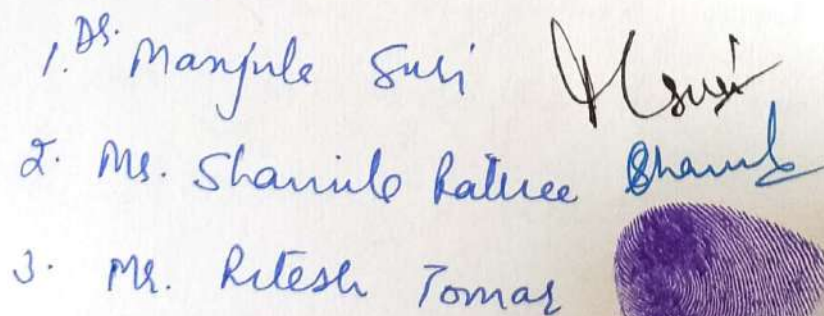 1. Dr. Manjula Suri Msuri
2. Ms. Sharmila Rathee Sharmila
3. Mr. Ritesh Tomar